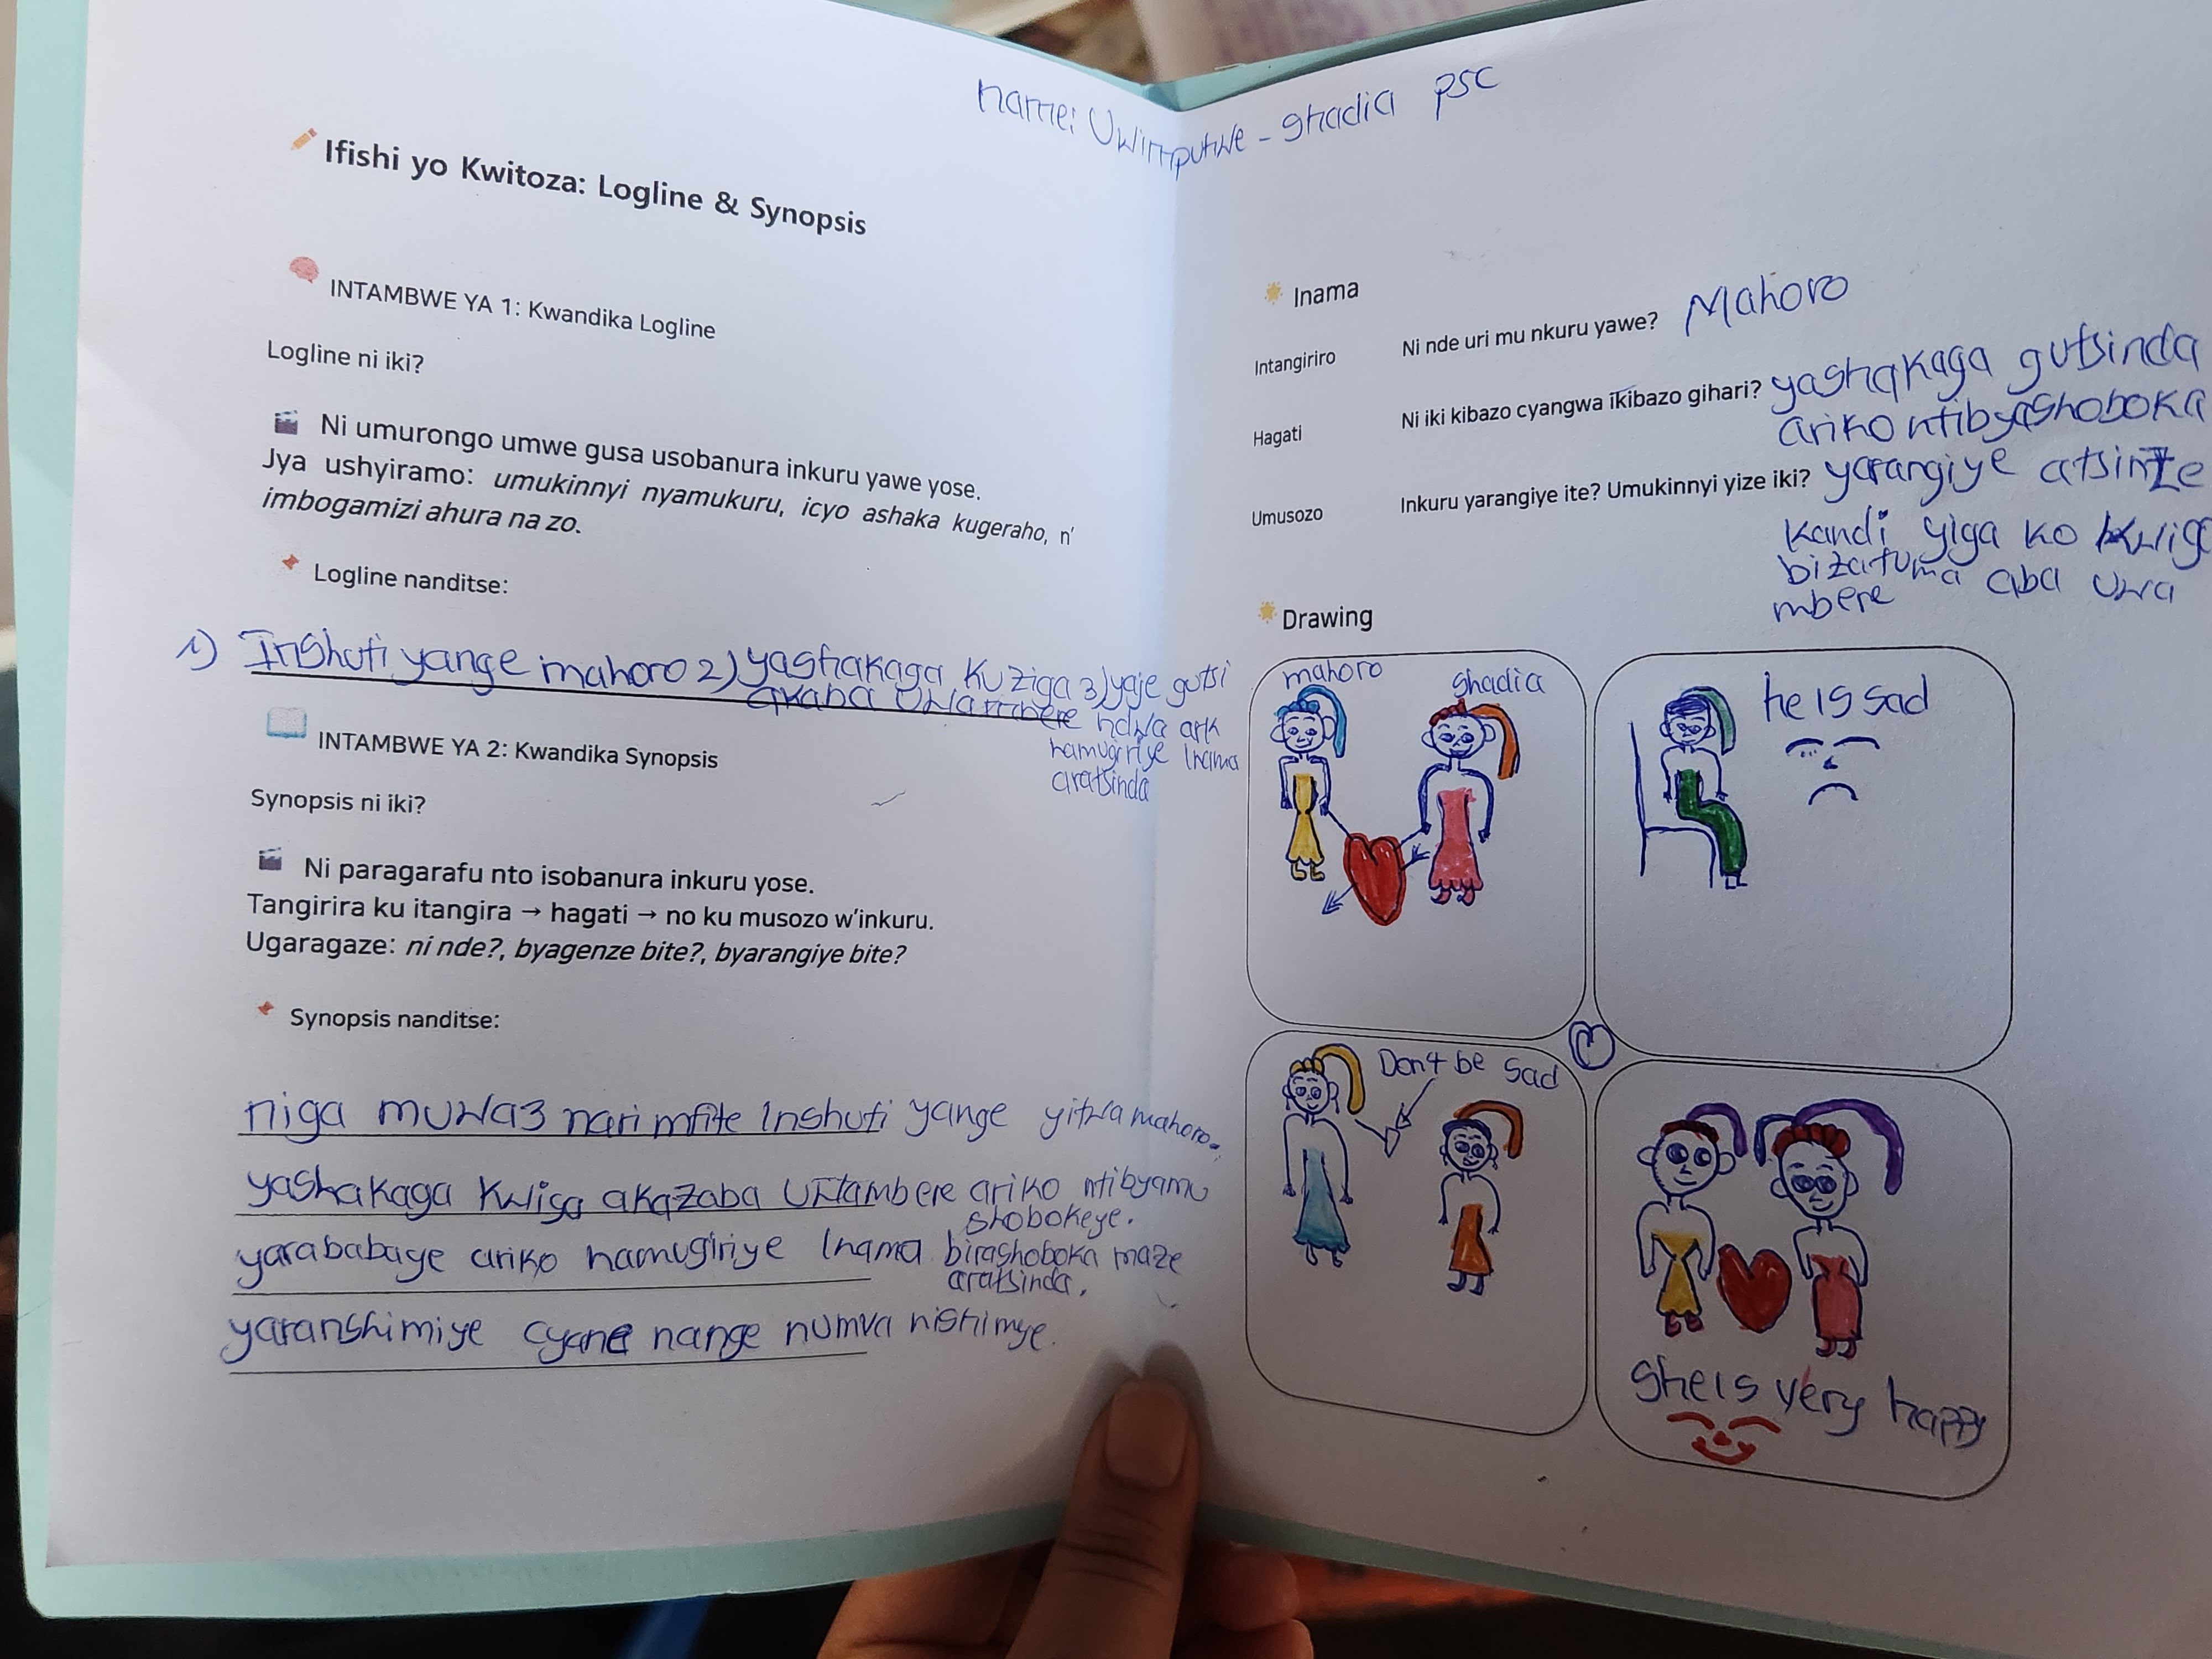 name: Uwimpuhwe - ghadia p5c
Ifishi yo Kwitoza: Logline & Synopsis
INTAMBWE YA 1: Kwandika Logline
Logline ni iki?
Ni umurongo umwe gusa usobanura inkuru yawe yose.
Jya ushyiramo: umukinnyi nyamukuru, icyo ashaka kugeraho, n'
imbogamizi ahura na zo.
Logline nanditse:
1) Inshuti yange mahoro 2) yashakaga kuziga 3) yaje gutsi
akaba uwambere ndwa ark
namugiriye Inama
aratsinda
INTAMBWE YA 2: Kwandika Synopsis
Synopsis ni iki?
Ni paragarafu nto isobanura inkuru yose.
Tangirira ku itangira → hagati → no ku musozo w'inkuru.
Ugaragaze: ni nde?, byagenze bite?, byarangiye bite?
Synopsis nanditse:
niga muwa3 nari mfite Inshuti yange yitwa mahoro.
yashakaga kwiga akazaba uwambere ariko ntibyamu
shobokeye.
yarababaye ariko namugiriye Inama birashoboka maze
aratsinda.
yaranshimiye cyane nange numva nishimye.
Inama
Intangiriro Ni nde uri mu nkuru yawe? Mahoro
Hagati Ni iki kibazo cyangwa ikibazo gihari? yashakaga gutsinda
ariko ntibyashoboka
Umusozo Inkuru yarangiye ite? Umukinnyi yize iki? yarangiye atsinze
kandi yiga ko kwiga
bizatuma aba uwa
mbere
Drawing
mahoro ghadia
he is sad
Don't be sad
she is very happy